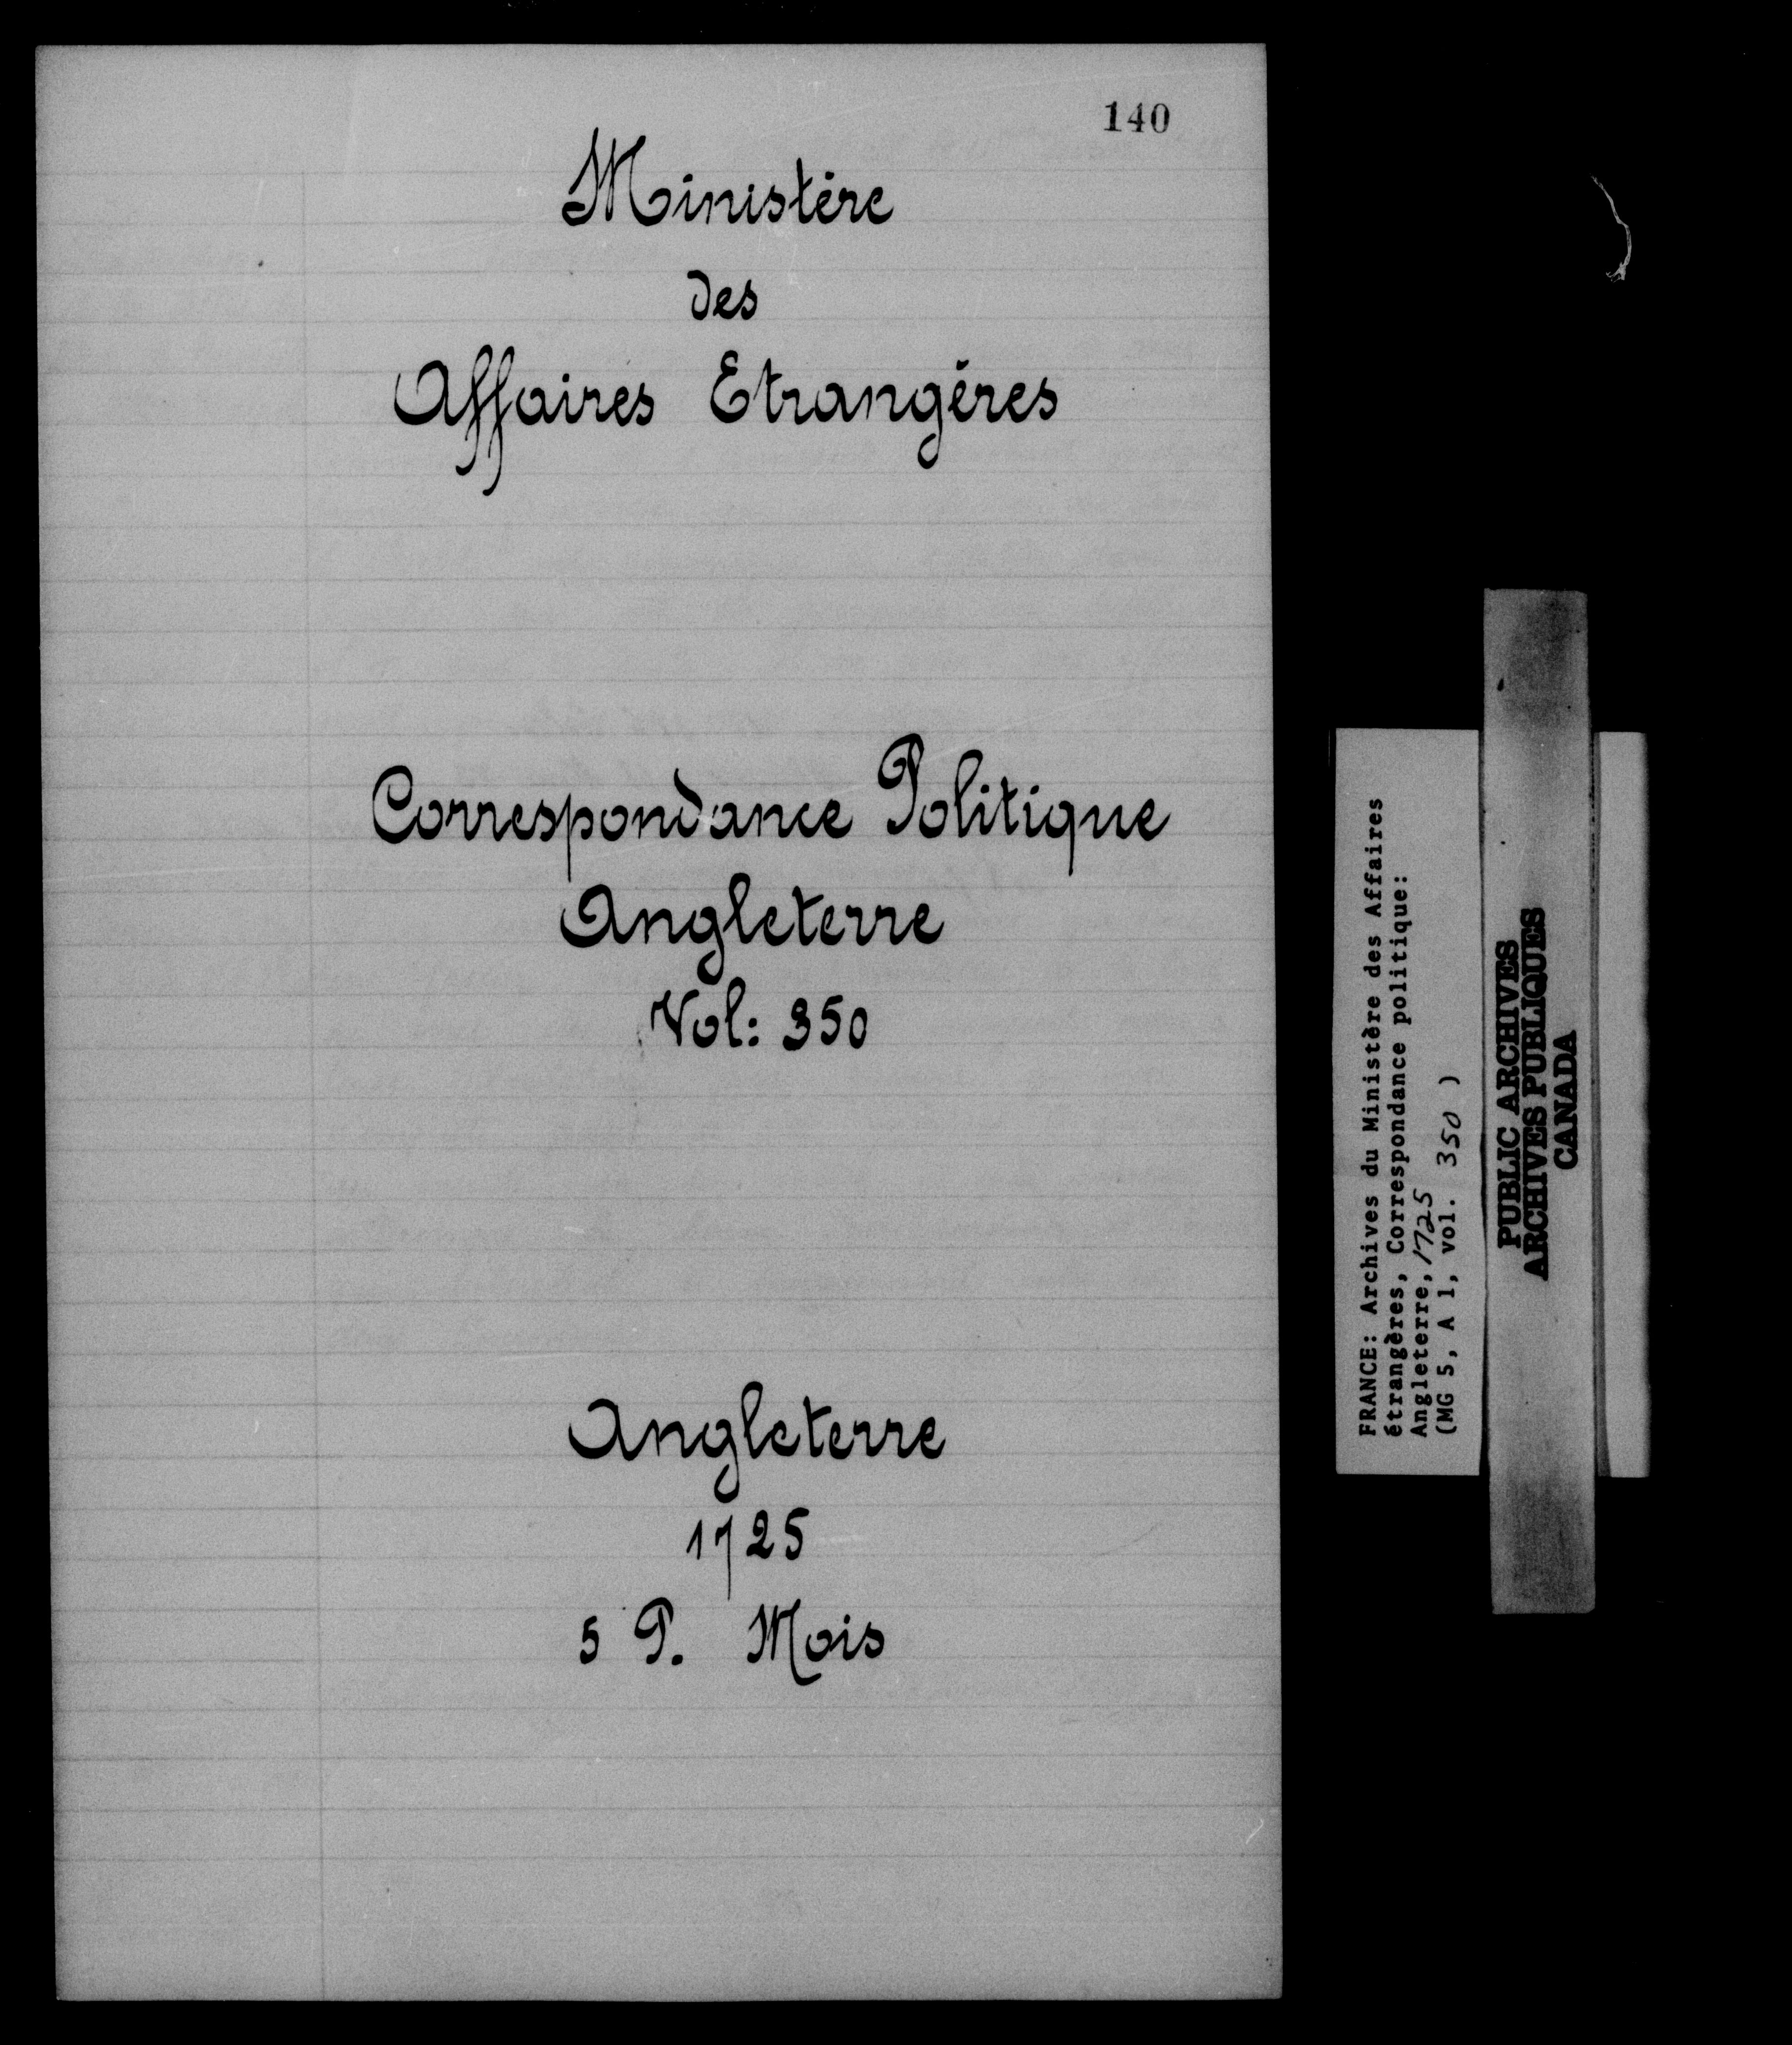 140
Ministère
des
Affaires Etrangères
Correspondance Politique
Angleterre
Vol: 350
Angleterre
1725
5 P. Mois
FRANCE: Archives du Ministère des Affaires
étrangères, Correspondance politique:
Angleterre, 1725
(MG 5, A 1, vol. 350 )
PUBLIC ARCHIVES
ARCHIVES PUBLIQUES
CANADA